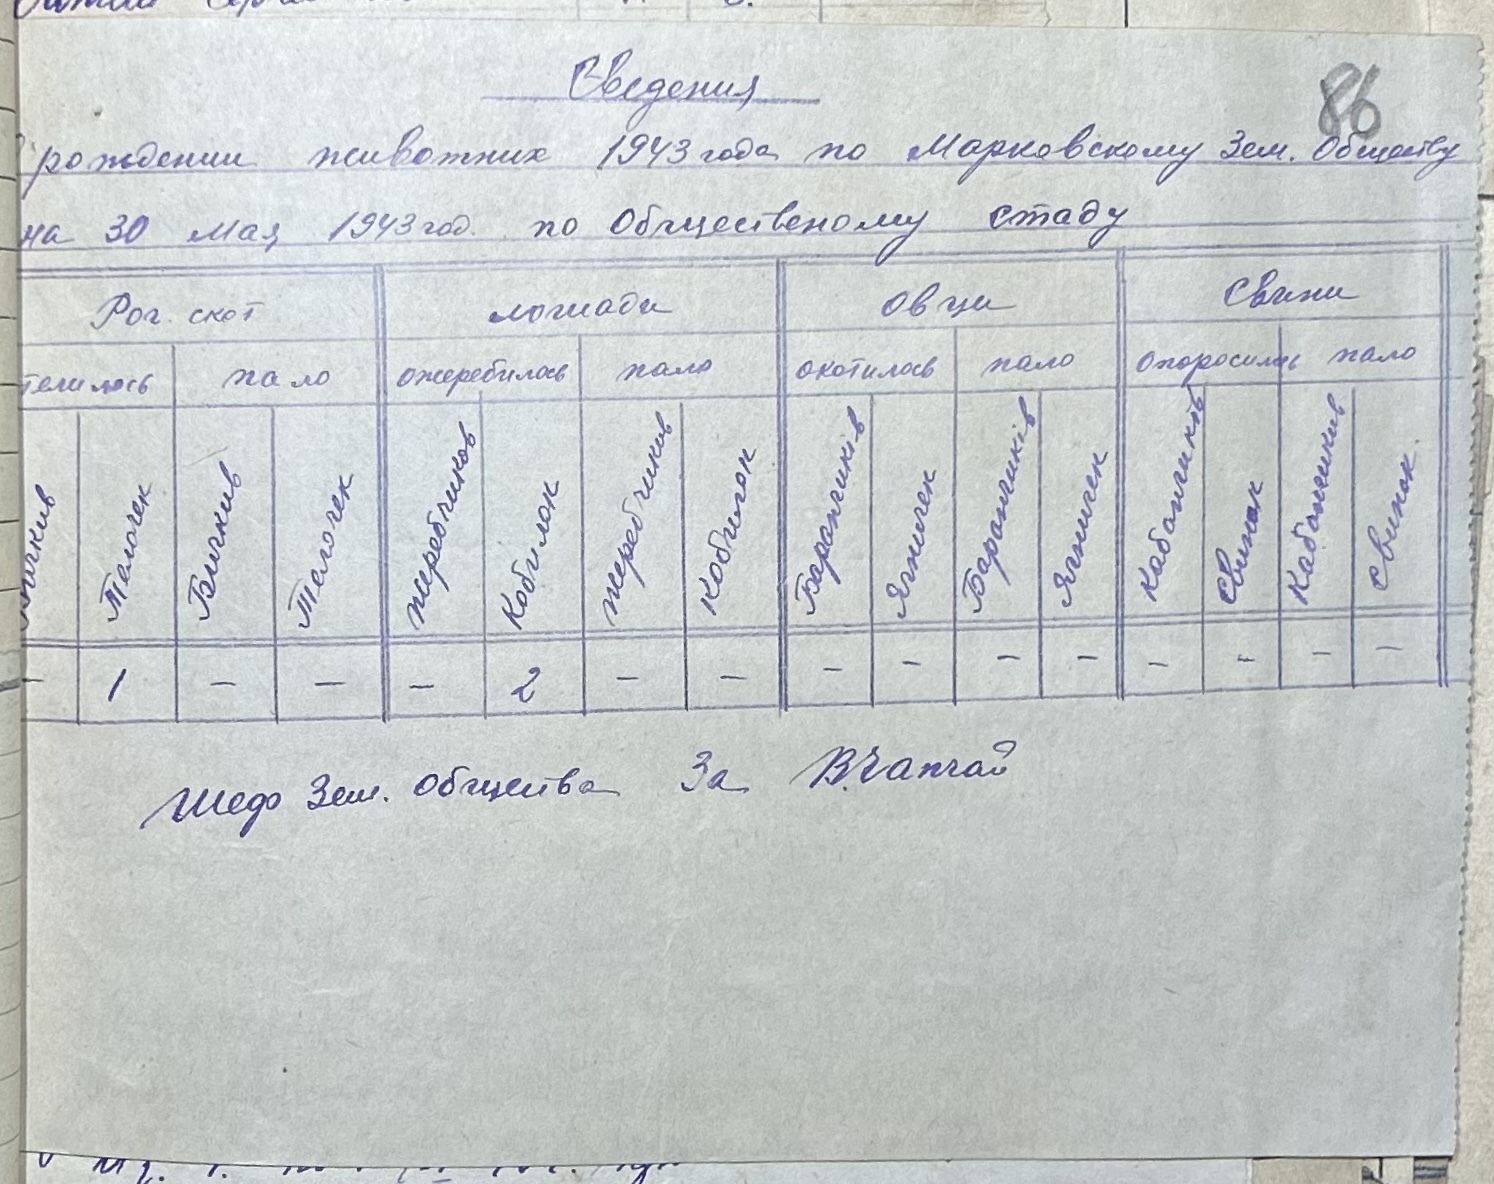 Сведения
86
рождении животних 1943 года по Марковскому Зем. Обществу
на 30 Мая 1943 год. по Общественому стаду
Рог. скот лошади Овци Свини
телилось пало ожеребилось пало окотилось пало опоросилась пало
Телочек Бичкив Телочек жеребчиков Кобилок жеребчиков Кобилок Баранчикiв Ягничек Баранчикiв Ягничек Кабанчикiв свинок Кабанчикив свинок.
– 1 – – – 2 – – – – – – – – – –
Шеф Зем. общества За В.Чапчай